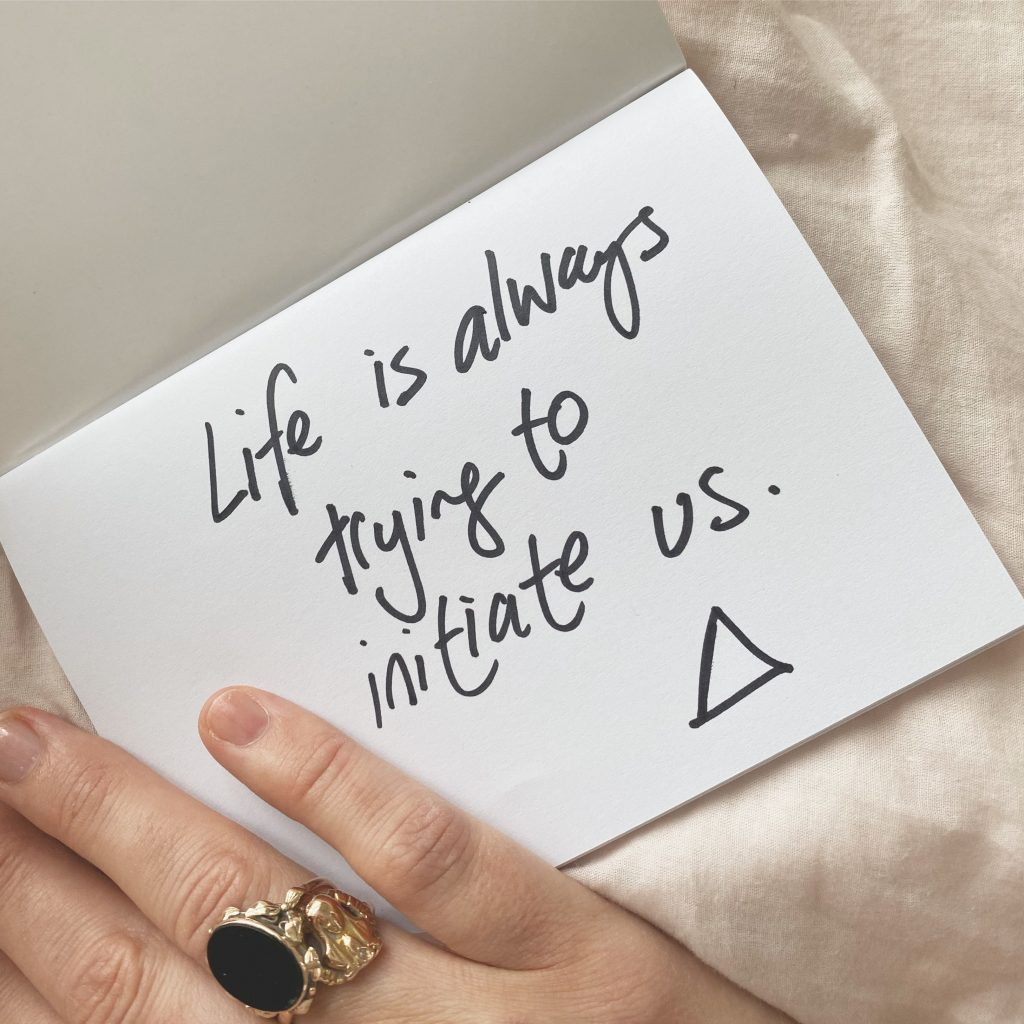 Life is always
trying to
initiate us.